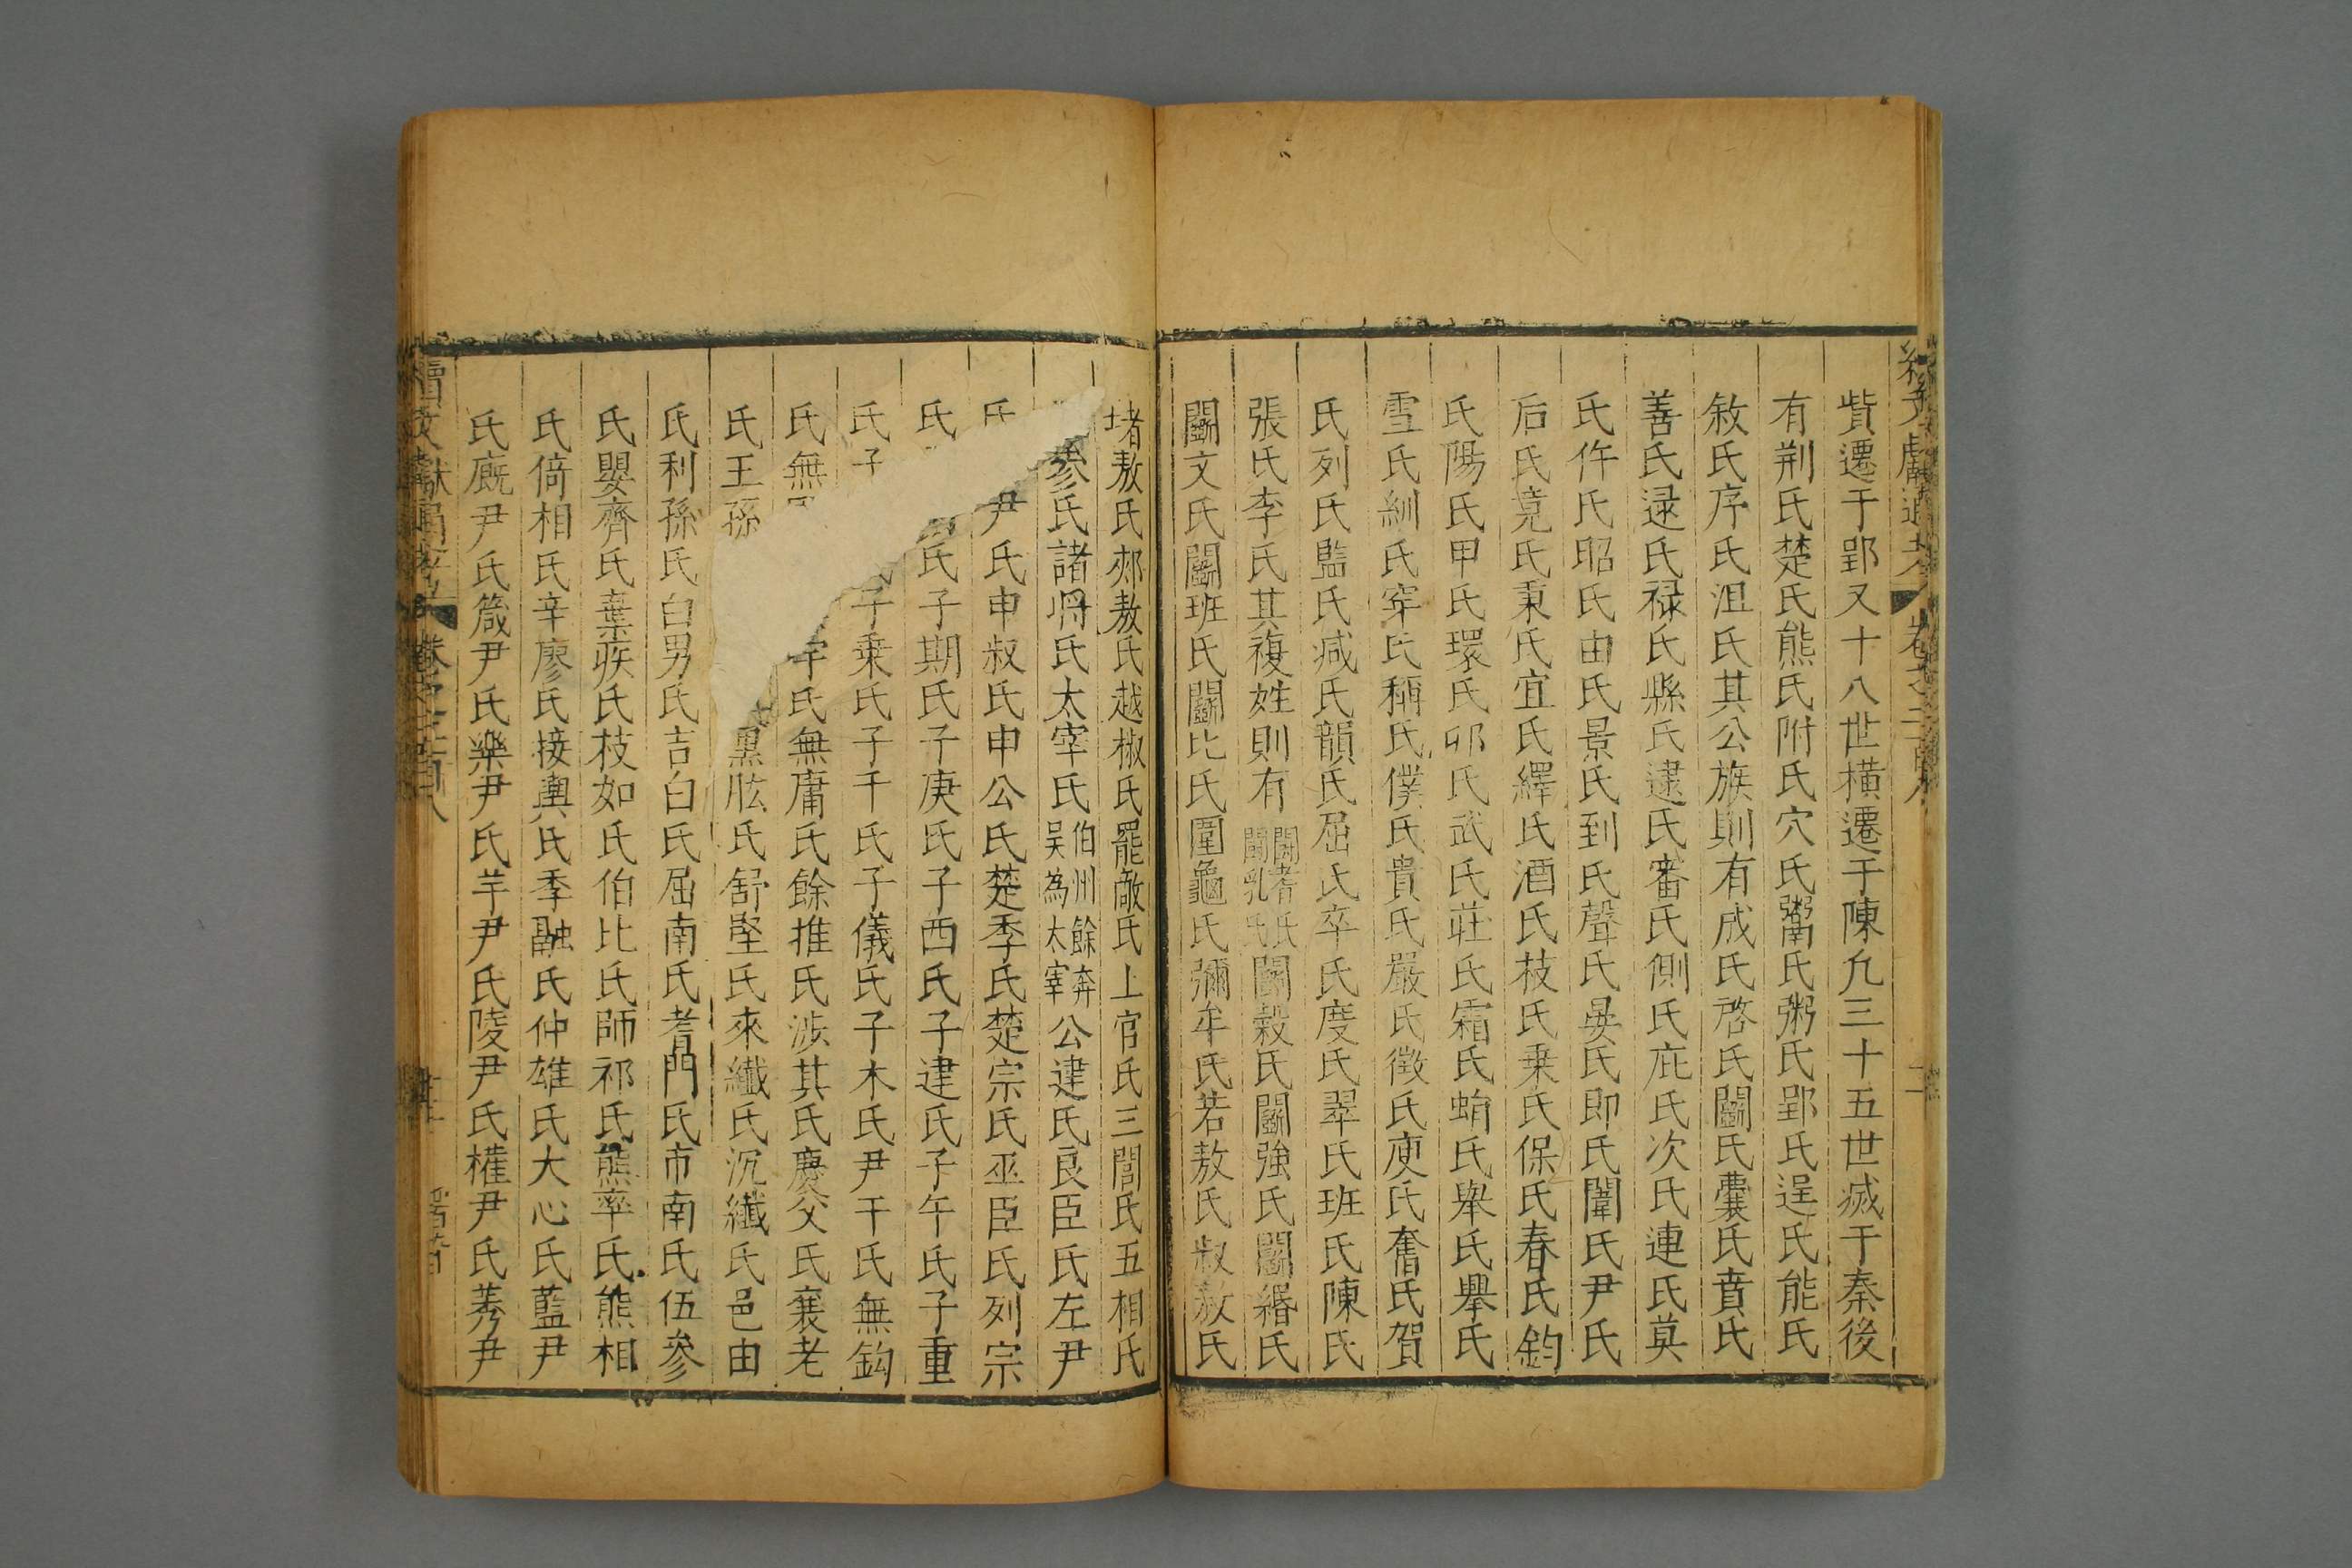 貲遷于郢又十八世橫遷于陳凡三十五世滅于秦後
有荆氏楚氏熊氏附氏穴氏鬻氏粥氏郢氏逞氏能氏
敘氏序氏沮氏其公族則有成氏啓氏鬭氏囊氏賁氏
善氏逯氏禄氏縣氏逮氏審氏側氏庇氏次氏連氏莫
氏仵氏昭氏由氏景氏到氏聲氏晏氏即氏闈氏尹氏
后氏竟氏秉氏宜氏繹氏酒氏枝氏乗氏保氏春氏鈞
氏陽氏甲氏環氏卯氏武氏莊氏霜氏蛸氏舉氏舉氏
雪氏紃氏穿氏稱氏僕氏貴氏嚴氏徵氏庾氏奮氏賀
氏列氏監氏减氏韻氏屈氏卒氏度氏翠氏班氏陳氏
張氏李氏其複姓則有鬭耆氏鬭乳氏鬭穀氏鬭強氏鬭緡氏
鬭文氏鬭班氏鬭比氏圍龜氏彌牟氏若敖氏叔敖氏
堵敖氏郟敖氏越椒氏罷敵氏上官氏三閭氏五相氏
參氏諸將氏太宰氏伯州餘奔吴為太宰公建氏良臣氏左尹
氏尹氏申叔氏申公氏楚季氏楚宗氏巫臣氏列宗
氏氏子期氏子庚氏子西氏子建氏子午氏子重
氏子子乗氏子干氏子儀氏子木氏尹干氏無鈎
氏無氏無庸氏餘推氏涉其氏慶父氏襄老
氏王孫黑肱氏舒堅氏來纖氏沉纖氏邑由
氏利孫氏白男氏吉白氏屈南氏耆門氏市南氏伍參
氏嬰齊氏葉疾氏枝如氏伯比氏師祁氏熊率氏熊相
氏倚相氏辛廖氏接輿氏季融氏仲雄氏大心氏藍尹
氏廐尹氏箴尹氏樂尹氏芊尹氏陵尹氏權尹氏莠尹
續文獻通考